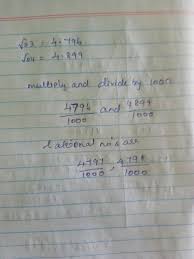 √23 = 4.794
√24 = 4.899
multiply and divide by 1000
4794/1000 and 4899/1000
Rational no's are
4797/1000, 4798/1000